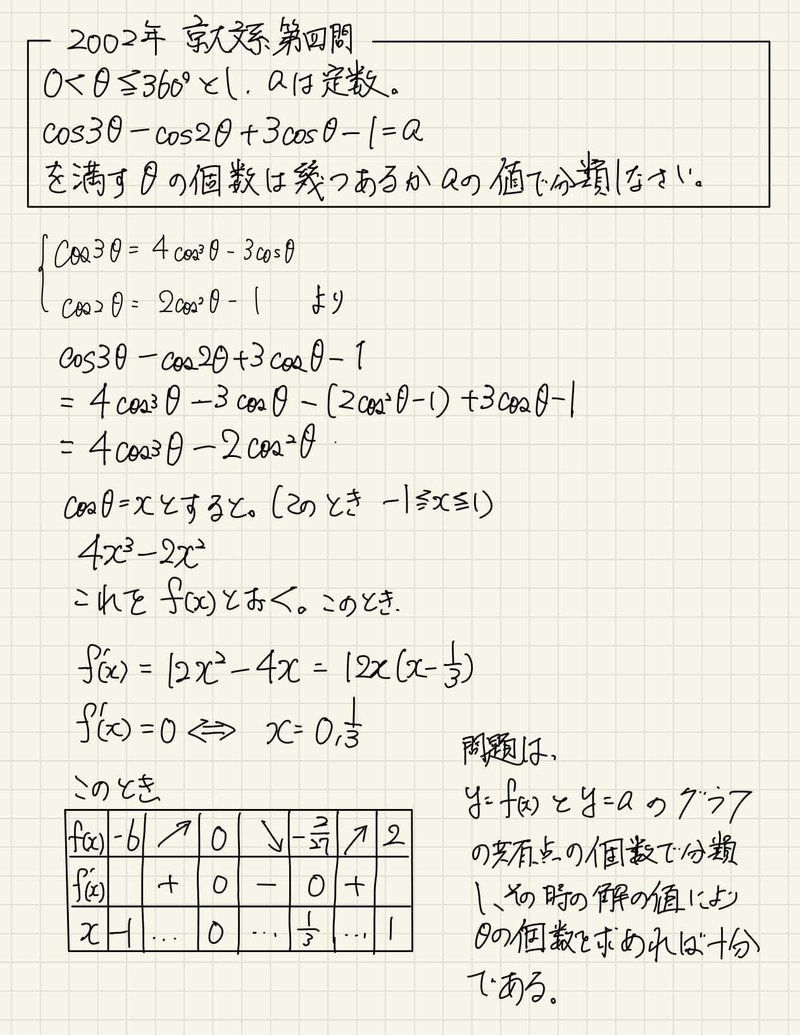 2002年 京大文系 第四問
0<θ≦360°とし、aは定数。
cos3θ-cos2θ+3cosθ-1=a
を満す θの個数は幾つあるか aの値で分類しなさい。
cos3θ= 4cos³θ-3cosθ
cos2θ= 2cos²θ-1 より
cos3θ-cos2θ+3cosθ-1
= 4cos³θ-3cosθ-(2cos²θ-1)+3cosθ-1
= 4cos³θ-2cos²θ
cosθ=xとすると。(このとき -1≦x≦1)
4x³-2x²
これを f(x)とおく。このとき.
f'(x) = 12x²-4x = 12x(x-1/3)
f'(x)=0 ⇔ x=0,1/3
このとき
f(x) -6 ↗ 0 ↘ -2/27 ↗ 2
f'(x) + 0 - 0 +
x -1 … 0 … 1/3 … 1
問題は、
y=f(x)とy=aのグラフ
の共有点の個数で分類
し、その時の解の値により
θの個数を求めれば十分
である。